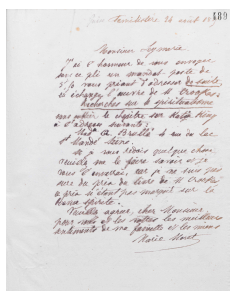 489
Monsieur Leymarie
J'ai l'honneur de vous envoyer
sous ce pli un mandat poste de
et je vous prierai d'adresser de suite,
en échange, l'œuvre de W. Crookes,
recherches sur le spiritualisme
le chapitre sur Katie King
à l'adresse suivante:
de Lac
St Mandé Seine.
Si je vous devais quelque chose
veuillez me le faire savoir et je
vous l'enverrai, car je ne suis pas
sûre du prix du livre de W. Crookes
ce prix n'étant pas marqué sur la
Revue spirite.
Veuillez agréer, cher Monsieur,
pour vous et les vôtres les meilleurs
sentiments de ma famille et les miens
Marie Moret